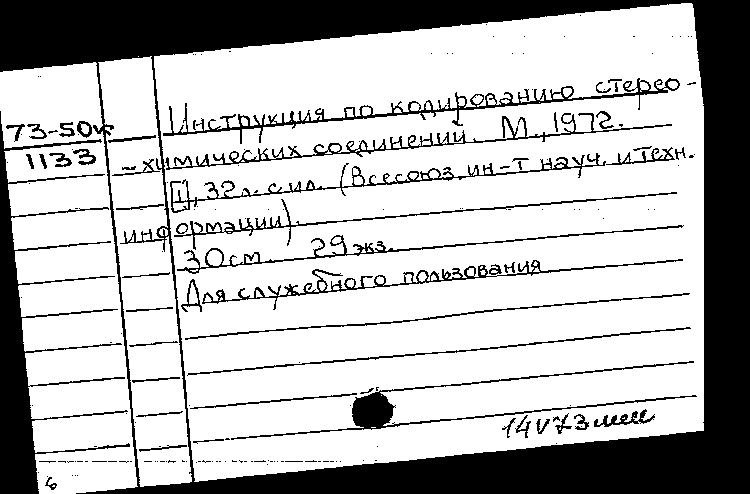 73-50к
1133
Инструкция по кодированию стерео-
-химических соединений. М., 1972.
[1], 32 л. с ил. (Всесоюз. ин-т науч. и техн.
информации).
30 см. 29 экз.
Для служебного пользования
14 V 73
6